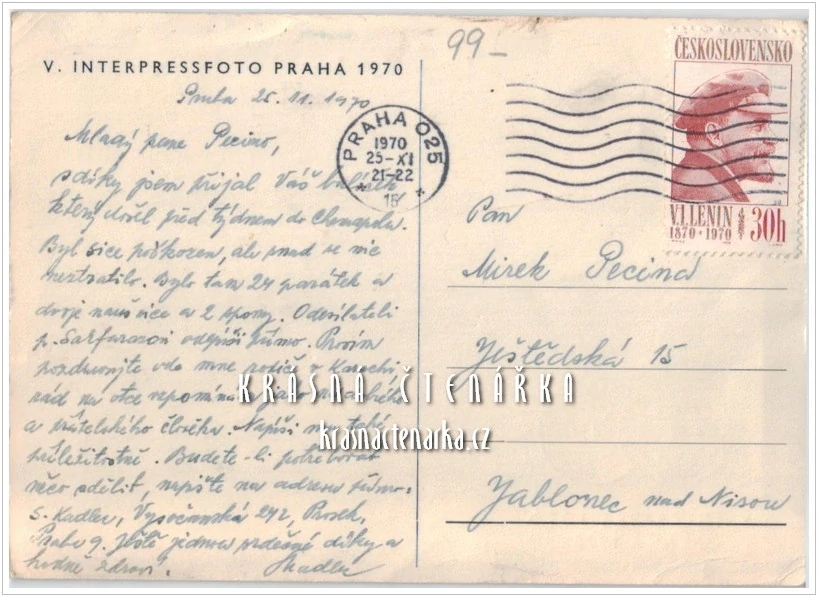 99-
V. INTERPRESSFOTO PRAHA 1970
Praha 25. 11. 1970
Mladý pane Pecino,
s díky jsem přijal Váš balíček
který došel před týdnem do Chemapolu.
Byl sice poškozen, ale snad se nic
neztratilo. Bylo tam 24 památek a
dvoje naušnice a 2 spony. Odesílateli
p. odepíši přímo. Prosím
pozdravujte ode mne rodiče v Karachi
rád na otce vzpomínám jako na
a přátelského člověka. Napíši mu také
příležitostně. Budete-li potřebovat
něco sdělit, napište na adresu přímo:
S. Kadlec, Vysočanská 242, Prosek,
Praha 9. Ještě jednou srdečné díky a
hodně zdraví. SKadlec
PRAHA 025
1970
25-XI
21-22
ČESKOSLOVENSKO
V.I. LENIN
1870·1970
30h
Pan
Mirek Pecina
Ještědská 15
Jablonec nad Nisou
KRÁSNÁ ČTENÁŘKA
krasnactenarka.cz